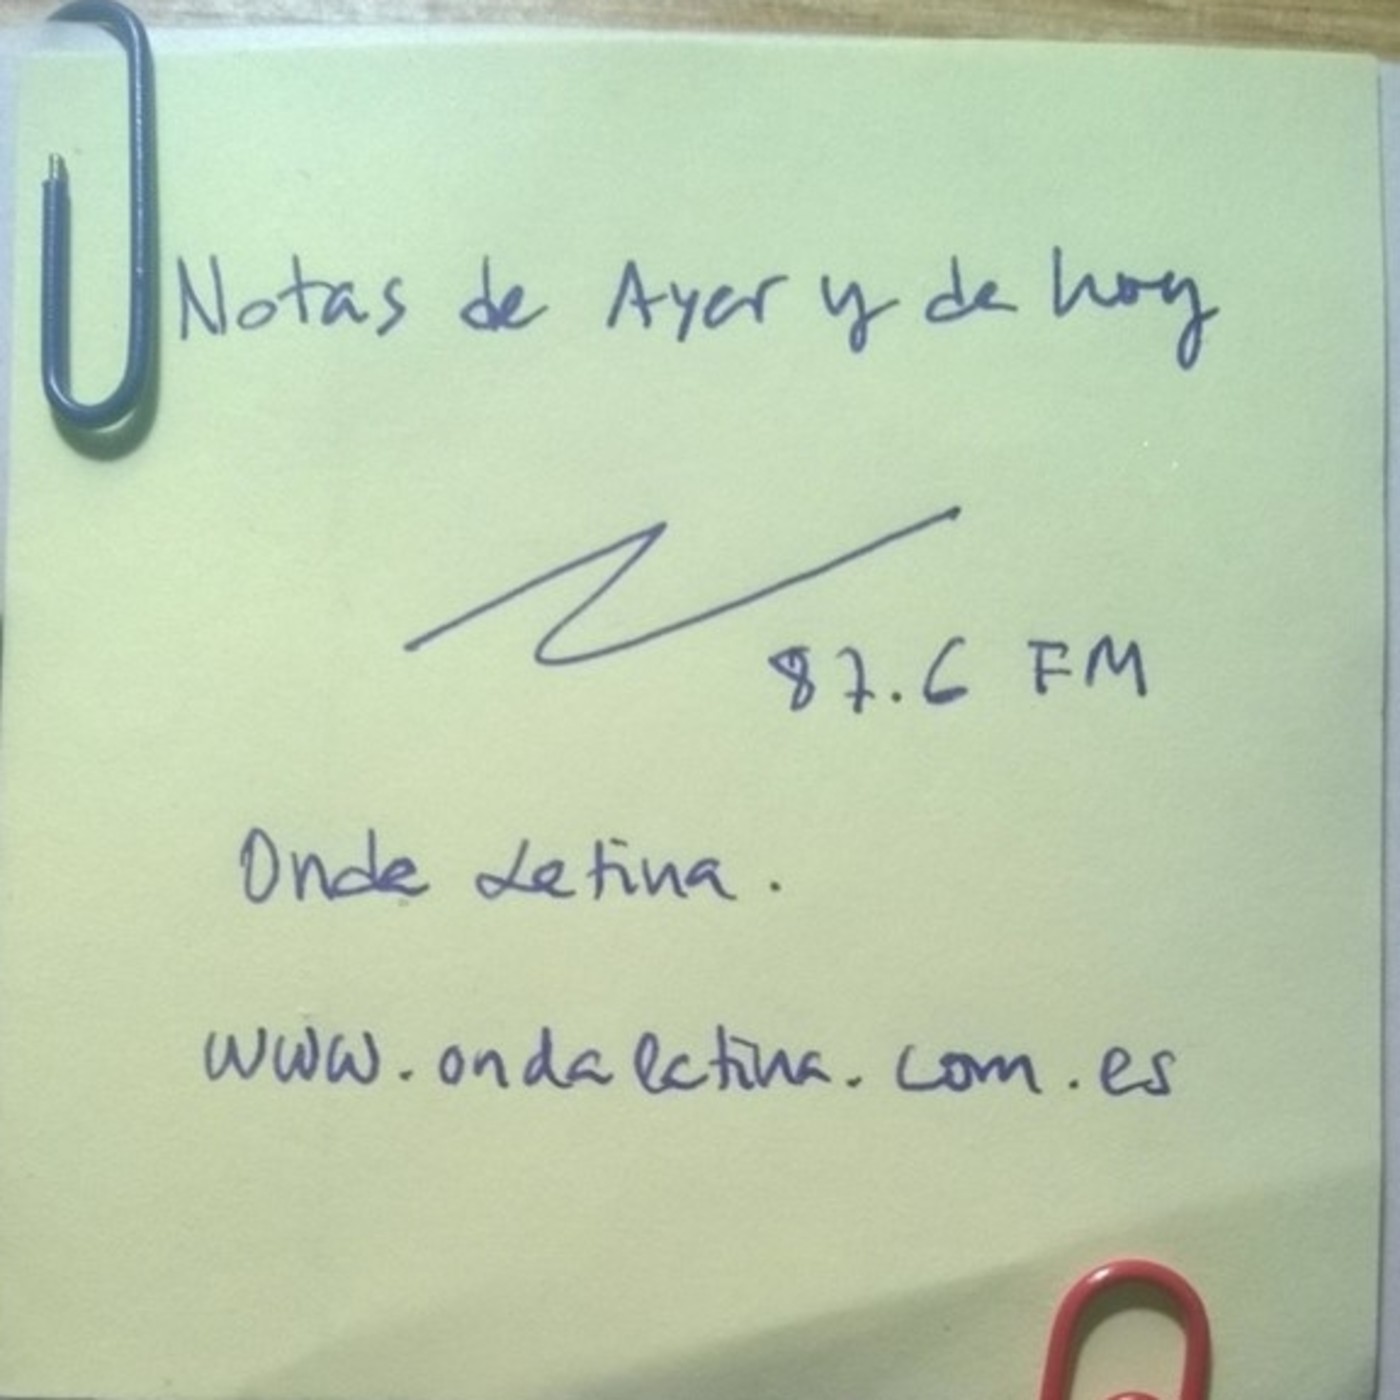 Notas de Ayer y de hoy
87.6 FM
Onda Latina.
www.ondalatina.com.es